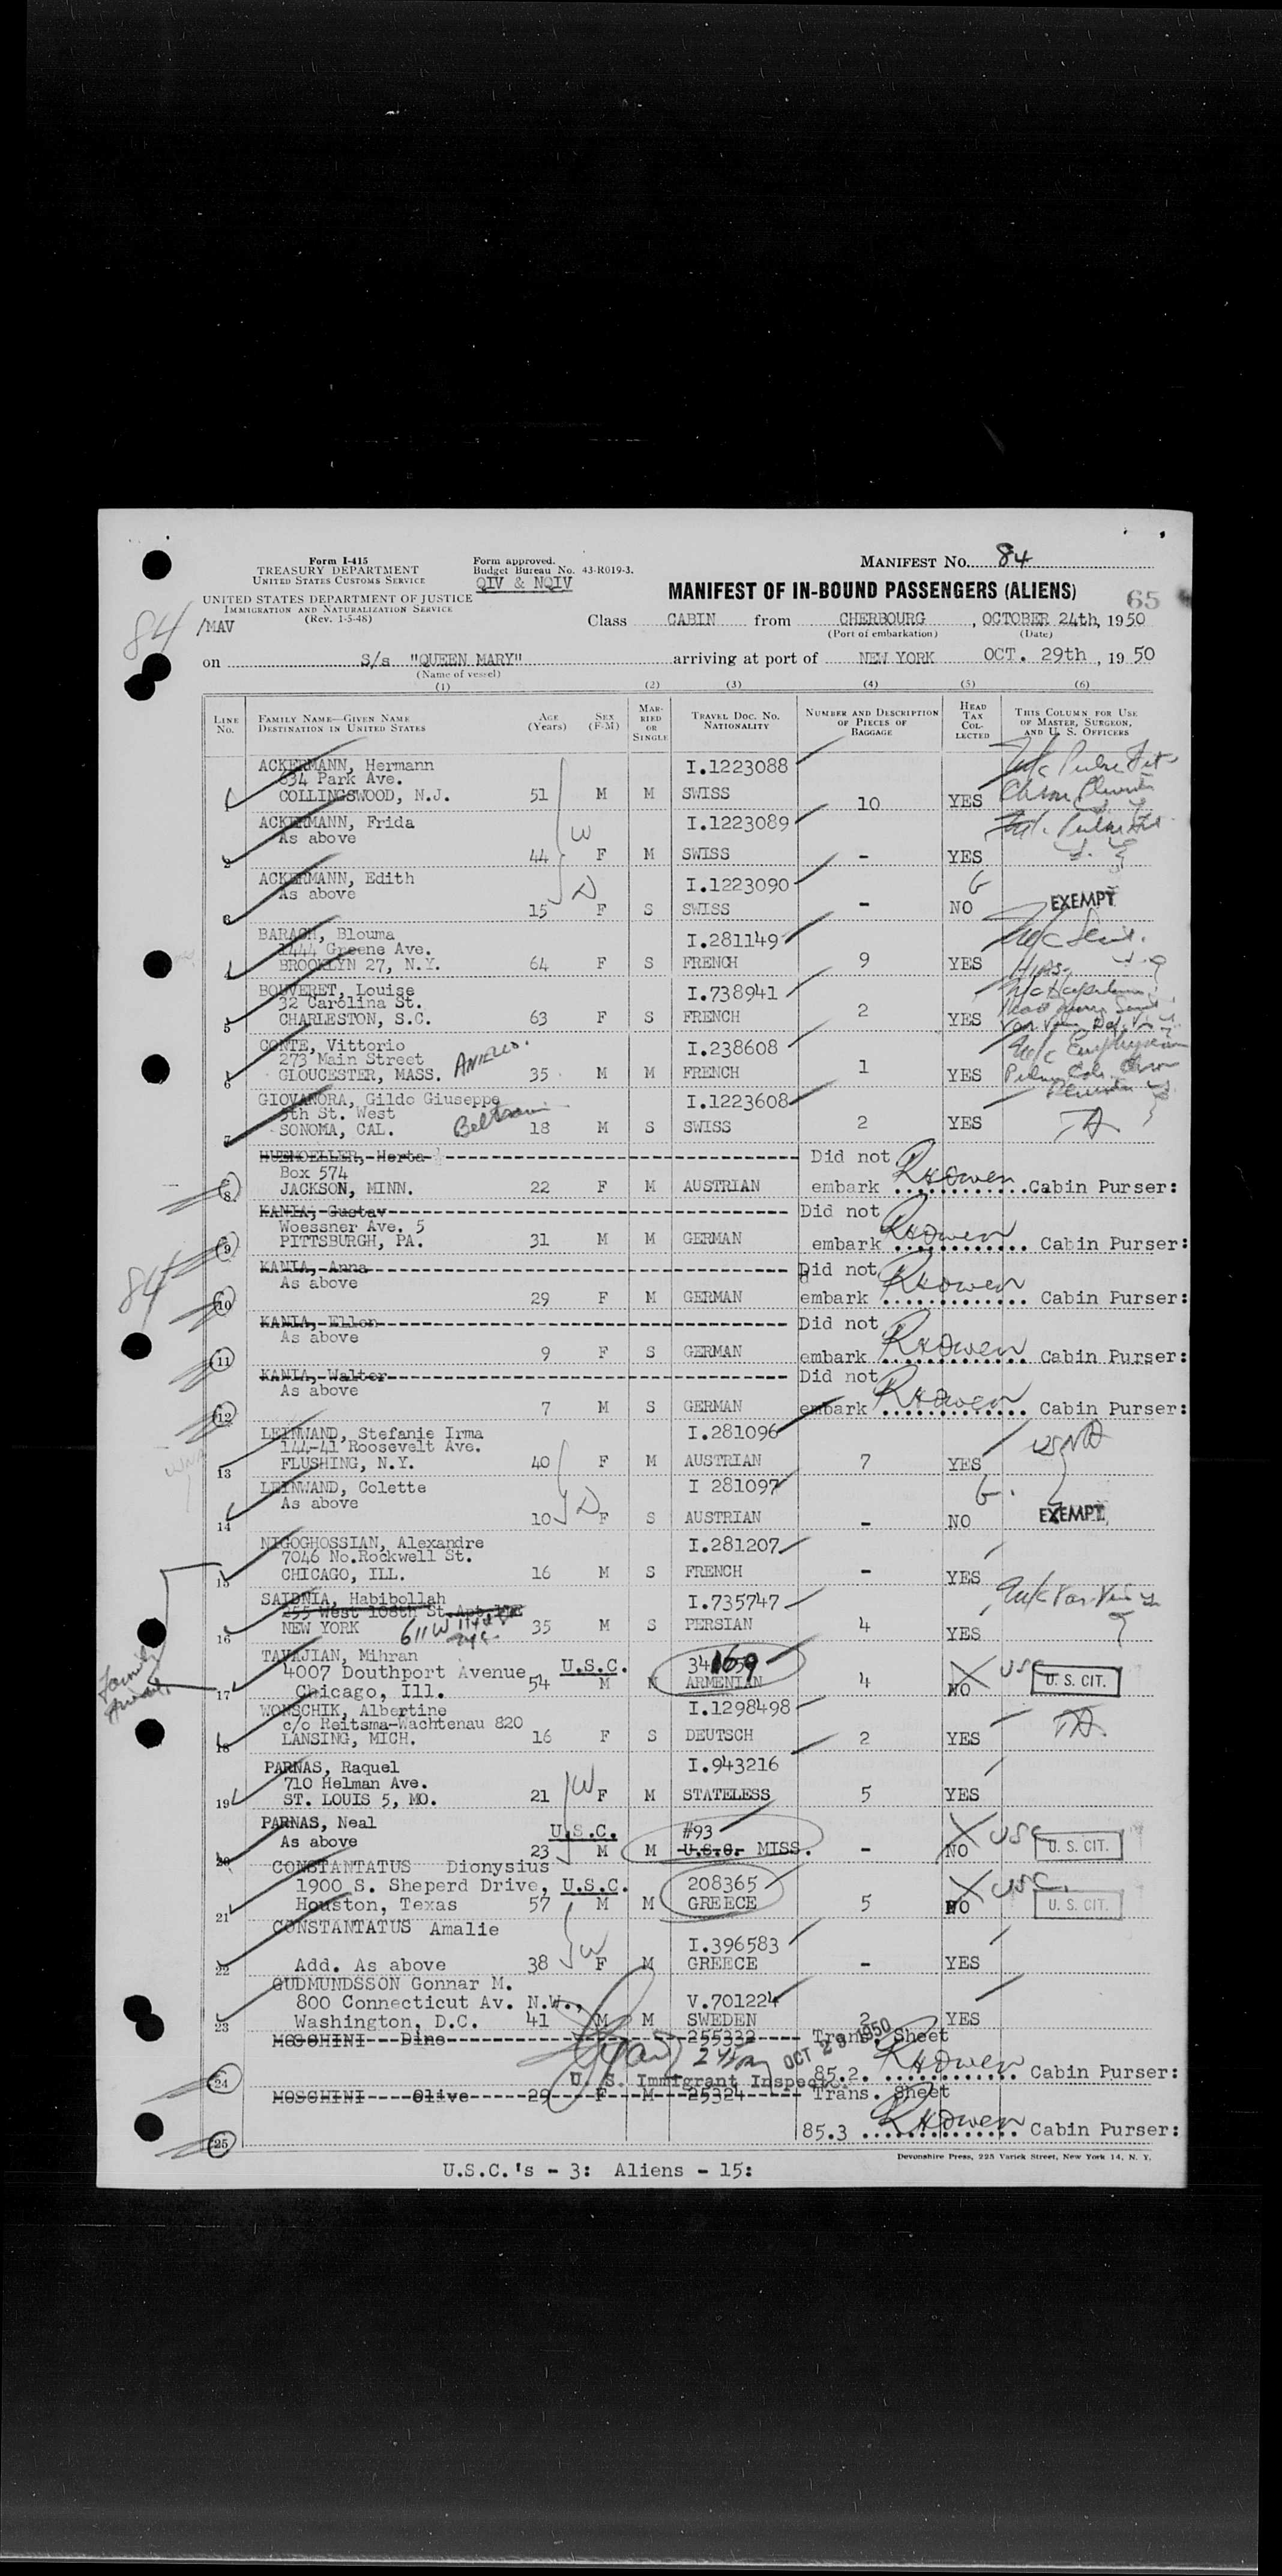 Form I-415
TREASURY DEPARTMENT
UNITED STATES CUSTOMS SERVICE
UNITED STATES DEPARTMENT OF JUSTICE
IMMIGRATION AND NATURALIZATION SERVICE
(Rev. 1-5-48)
/MAV
Form approved.
Budget Bureau No. 43-R019-3.
QIV & NQIV
MANIFEST No. 84
MANIFEST OF IN-BOUND PASSENGERS (ALIENS)
65
84
Class CABIN from CHERBOURG, OCTOBER 24th, 1950
(Port of embarkation) (Date)
on S/s "QUEEN MARY" arriving at port of NEW YORK OCT. 29th, 1950
(Name of vessel)
(1) (2) (3) (4) (5) (6)
LINE No.
FAMILY NAME—GIVEN NAME
DESTINATION IN UNITED STATES
AGE (Years)
SEX (F-M)
MARRIED OR SINGLE
TRAVEL DOC. NO. NATIONALITY
NUMBER AND DESCRIPTION OF PIECES OF BAGGAGE
HEAD TAX COLLECTED
THIS COLUMN FOR USE OF MASTER, SURGEON, AND U. S. OFFICERS
ACKERMANN, Hermann I.1223088
834 Park Ave.
1 COLLINGSWOOD, N.J. 51 M M SWISS 10 YES
ACKERMANN, Frida I.1223089
As above W
2 44 F M SWISS - YES
ACKERMANN, Edith I.1223090
As above D G
3 15 F S SWISS - NO EXEMPT
BARACH, Blouma I.281149
1444 Greene Ave.
4 BROOKLYN 27, N.Y. 64 F S FRENCH 9 YES
BOUVERET, Louise I.738941
32 Carolina St.
5 CHARLESTON, S.C. 63 F S FRENCH 2 YES
CONTE, Vittorio I.238608
273 Main Street ANIELLO.
6 GLOUCESTER, MASS. 35 M M FRENCH 1 YES
GIOVANORA, Gildo Giuseppe I.1223608
5th St. West Beltrami
7 SONOMA, CAL. 18 M S SWISS 2 YES
HUEMOELLER, Herta Did not
Box 574
8 JACKSON, MINN. 22 F M AUSTRIAN embark RHOwen Cabin Purser:
KANIA, Gustav Did not
Woessner Ave. 5
9 PITTSBURGH, PA. 31 M M GERMAN embark RHOwen Cabin Purser:
84
KANIA, Anna Did not
As above
10 29 F M GERMAN embark RHOwen Cabin Purser:
KANIA, Ellen Did not
As above
11 9 F S GERMAN embark RHOwen Cabin Purser:
KANIA, Walter Did not
As above
12 7 M S GERMAN embark RHOwen Cabin Purser:
LEINWAND, Stefanie Irma I.281096
144-41 Roosevelt Ave.
13 FLUSHING, N.Y. 40 F M AUSTRIAN 7 YES
LEINWAND, Colette I 281097
As above D G.
14 10 F S AUSTRIAN - NO EXEMPT
NIGOGHOSSIAN, Alexandre I.281207
7046 No.Rockwell St.
15 CHICAGO, ILL. 16 M S FRENCH - YES
SAIDNIA, Habibollah I.735747
255 West 108th St. Apt.
16 NEW YORK 611 W 35 M S PERSIAN 4 YES
TAVAJIAN, Mihran
4007 Douthport Avenue U.S.C. 169
17 Chicago, Ill. 54 M M ARMENIAN 4 NO USC U. S. CIT.
WONSCHIK, Albertine I.1298498
c/o Reitsma-Wachtenau 820
18 LANSING, MICH. 16 F S DEUTSCH 2 YES
PARNAS, Raquel I.943216
710 Helman Ave. W
19 ST. LOUIS 5, MO. 21 F M STATELESS 5 YES
PARNAS, Neal U.S.C. #93
20 As above 23 M M U.S.C. MISS. - NO USC U. S. CIT.
CONSTANTATUS Dionysius
1900 S. Sheperd Drive, U.S.C. 208365
21 Houston, Texas 57 M M GREECE 5 NO USC. U. S. CIT.
CONSTANTATUS Amalie
I.396583 W
22 Add. As above 38 F M GREECE - YES
GUDMUNDSSON Gonnar M.
800 Connecticut Av. N.W., V.701224
23 Washington, D.C. 41 M M SWEDEN 2 YES
MOSCHINI Dino 255332 Trans. Sheet
OCT 29 1950
24 U. S. Immigrant Inspector 85.2. RHOwen Cabin Purser:
MOSCHINI Olive 29 F M 25324 Trans. Sheet
25 85.3 RHOwen Cabin Purser:
Devonshire Press, 225 Varick Street, New York 14, N. Y.
U.S.C.'s - 3: Aliens - 15: